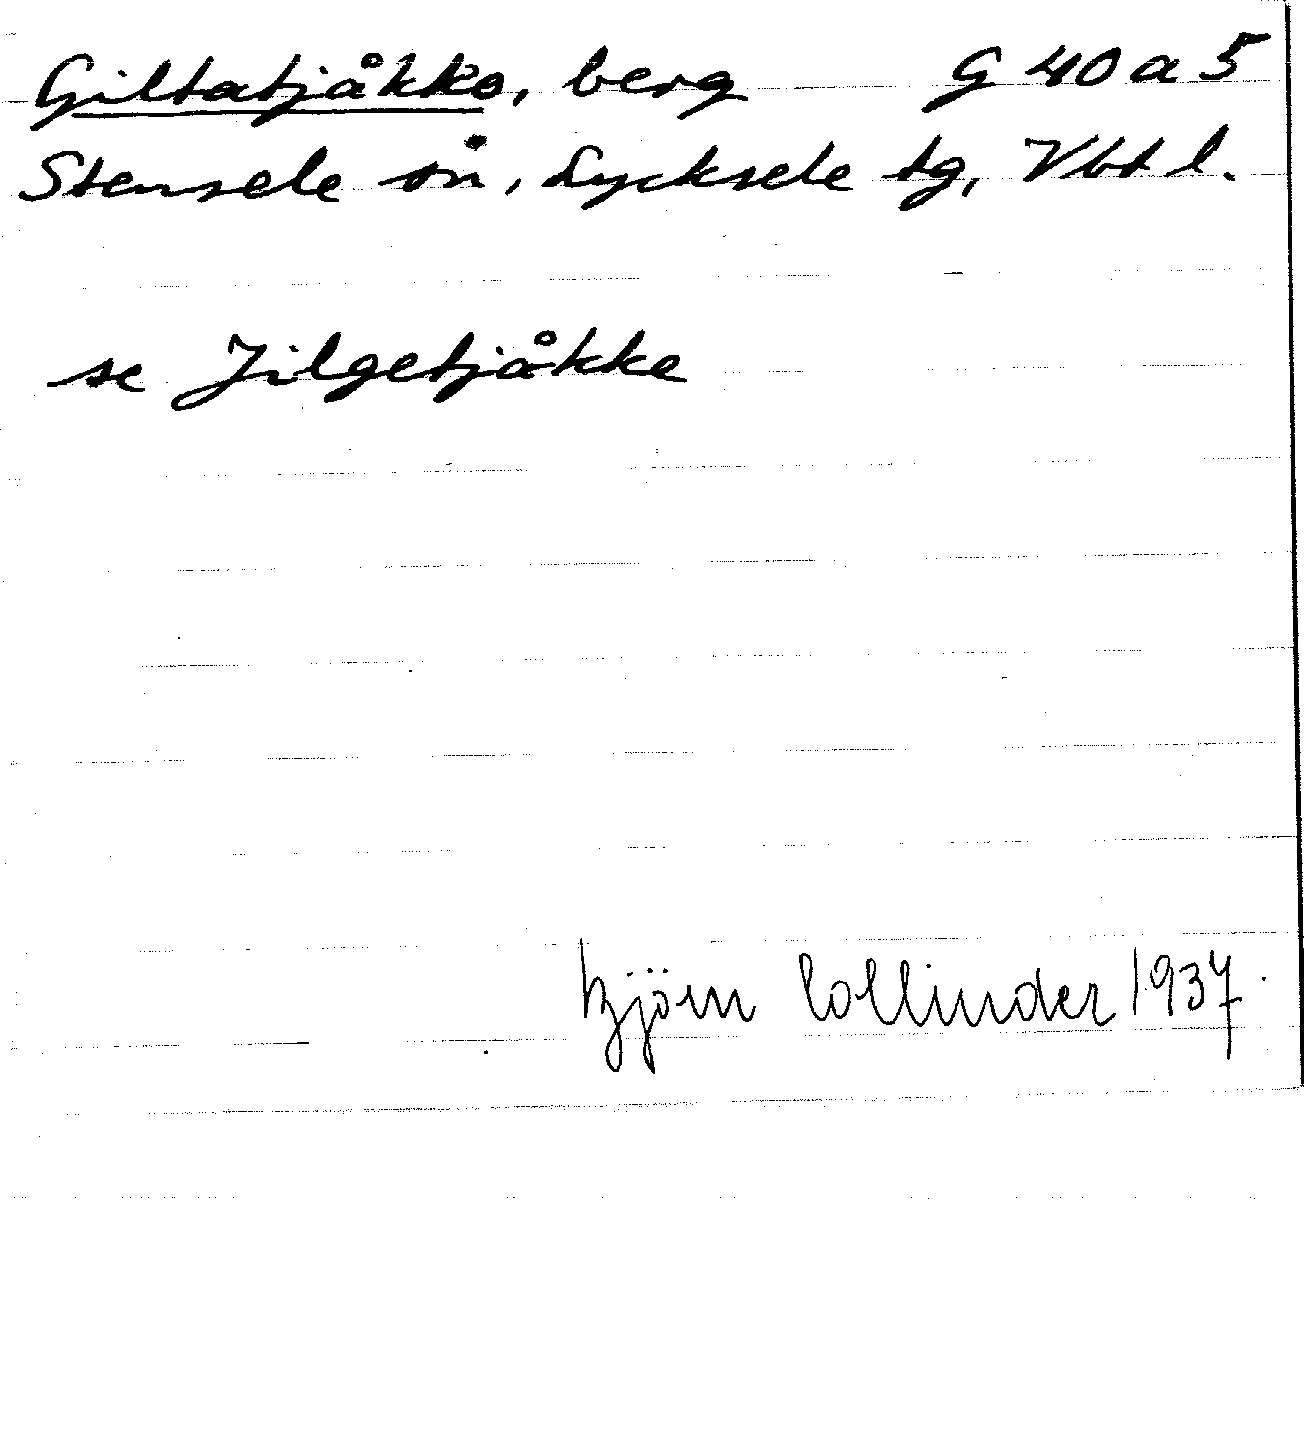 Giltatjåkko, berg G 40 a 5
Stensele sn, Lycksele tg, Vbt l.
se Jilgetjåkke
Björn Collinder 1937.